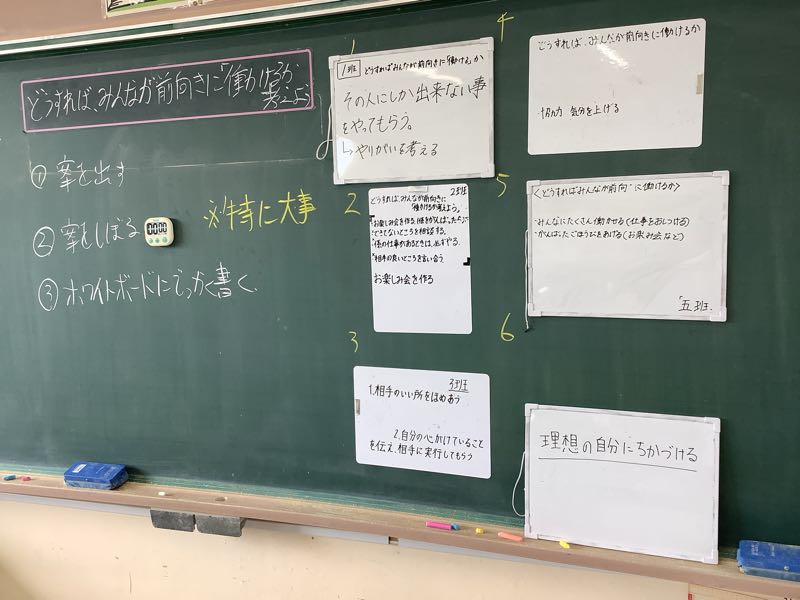 どうすれば、みんなが前向きに働けるか
考えよう
① 案を出す
② 案をしぼる
00:00
※特に大事
③ ホワイトボードにでっかく書く。
1
1班 どうすればみんなが前向きに働けるか
その人にしか出来ない事
をやってもらう。
↳やりがいを考える
2
2班
どうすれば、みんなが前向きに
働けるか考えよう。
・できてないところを相談する。
・相手の良いところを言い合う
お楽しみ会を作る
3
3班
1.相手のいい所をほめあう
2.自分の心がけていること
を伝え、相手に実行してもらう
4
どうすれば、みんなが前向きに働けるか
・協力 気分を上げる
5
<どうすればみんなが前向に働けるか>
・みんなにたくさん働かせる(仕事をおしつける)
・がんばったごほうびをあげる(お楽み会など)
五班.
6
理想の自分にちかづける